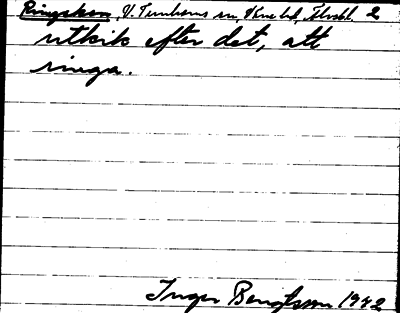 Ringskon, V. Tunhems sn, Väne hd, Älvsbl. 2
utkik efter det, att
ringa.
Inger Bengtsson 1942